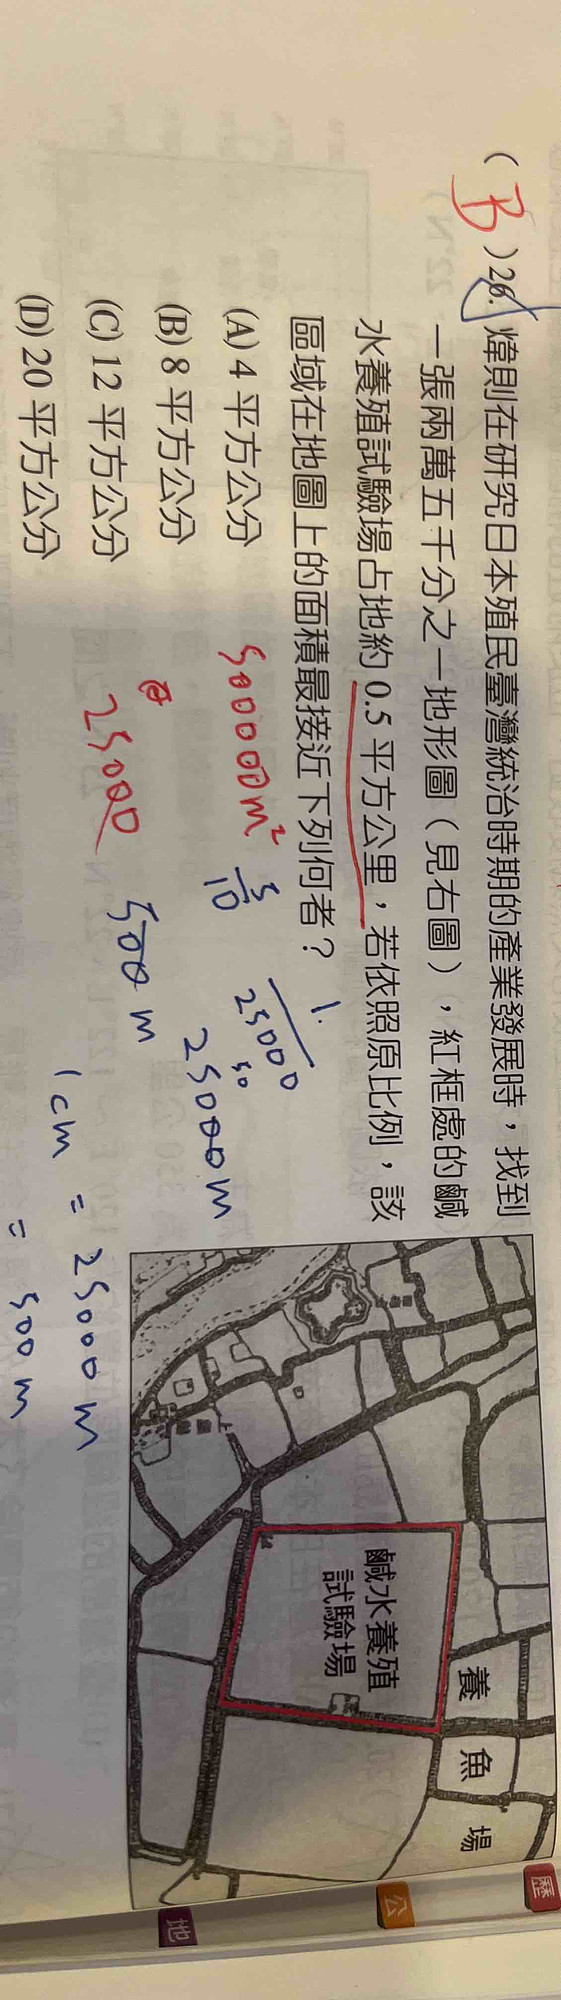 ( B )26. 煒則在研究日本殖民臺灣統治時期的產業發展時，找到
一張兩萬五千分之一地形圖（見右圖），紅框處的鹹
水養殖試驗場占地約 0.5 平方公里，若依照原比例，該
區域在地圖上的面積最接近下列何者？
(A) 4 平方公分
(B) 8 平方公分
(C) 12 平方公分
(D) 20 平方公分
500000m²
5/10
1.
25000
50
25000m
25000
500 m
1cm = 25000 m
= 500 m
鹹水養殖
試驗場
養魚場
歷
公
地